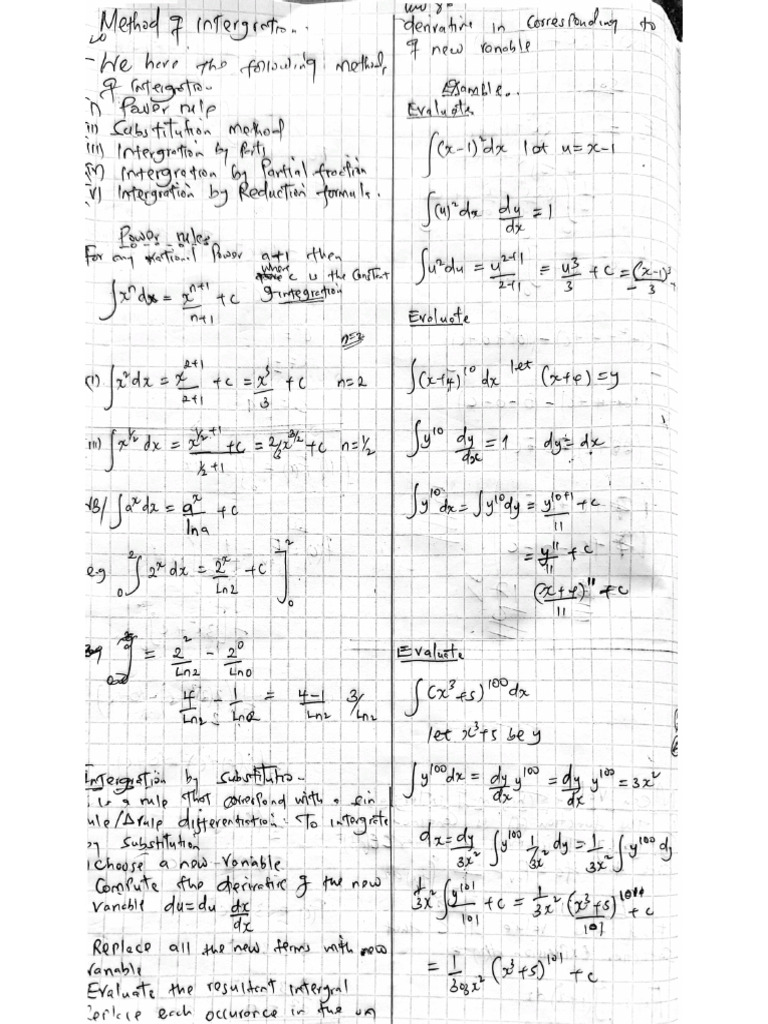 Method of intergration.
- We have the following methods
of intergration
i) Power rule
ii) Substitution method
iii) Intergration by Parts
iv) Intergration by Partial fraction
v) Intergration by Reduction formula.
Power rules
For any rational Power n+1 then
∫xⁿdx = xⁿ⁺¹/n+1 + c where c is the constant
of integration
n=2
(i) ∫x²dx = x²⁺¹/2+1 + c = x³/3 + c n=2
iii) ∫x^½ dx = x^(½+1)/½+1 + c = 2/3 x^3/2 + c n=½
NB/ ∫aˣdx = aˣ/lna + c
eg ₀²∫2ˣdx = 2ˣ/Ln2 + c]₀²
= 2²/Ln2 - 2⁰/Ln0
4/Ln2 - 1/Ln2 = 4-1/Ln2 3/Ln2
Intergration by substitutio.
is a rule that correspond with
rule/Δrule differentiation. To intergrate
by substitution
choose a new variable
Compute the derivative of the new
variable du=du dx/dx
Replace all the new terms with new
variable
Evaluate the resultant intergral
Replace each occurance in the
derivative in corresponding to
of new variable
Example..
Evaluate
∫(x-1)²dx let u=x-1
∫(u)²dx dy/dx = 1
∫u²du = u²⁺¹/2+1 = u³/3 + c = (x-1)³/3 +
Evaluate
∫(x+4)¹⁰ dx let (x+4) = y
∫y¹⁰ dy/dx = 1 dy = dx
∫y¹⁰dx = ∫y¹⁰dy = y¹⁰⁺¹/11 + c
= y¹¹/11 + c
(x+4)¹¹/11 + c
Evaluate
∫(x³+5)¹⁰⁰dx
let x³+5 be y
∫y¹⁰⁰dx = dy/dx y¹⁰⁰ = dy/dx y¹⁰⁰ = 3x²
dx = dy/3x² ∫y¹⁰⁰ 1/3x² dy = 1/3x² ∫y¹⁰⁰ dy
1/3x² ∫y¹⁰¹/101 + c = 1/3x² (x³+5)¹⁰¹/101 + c
= 1/303x² (x³+5)¹⁰¹ + c